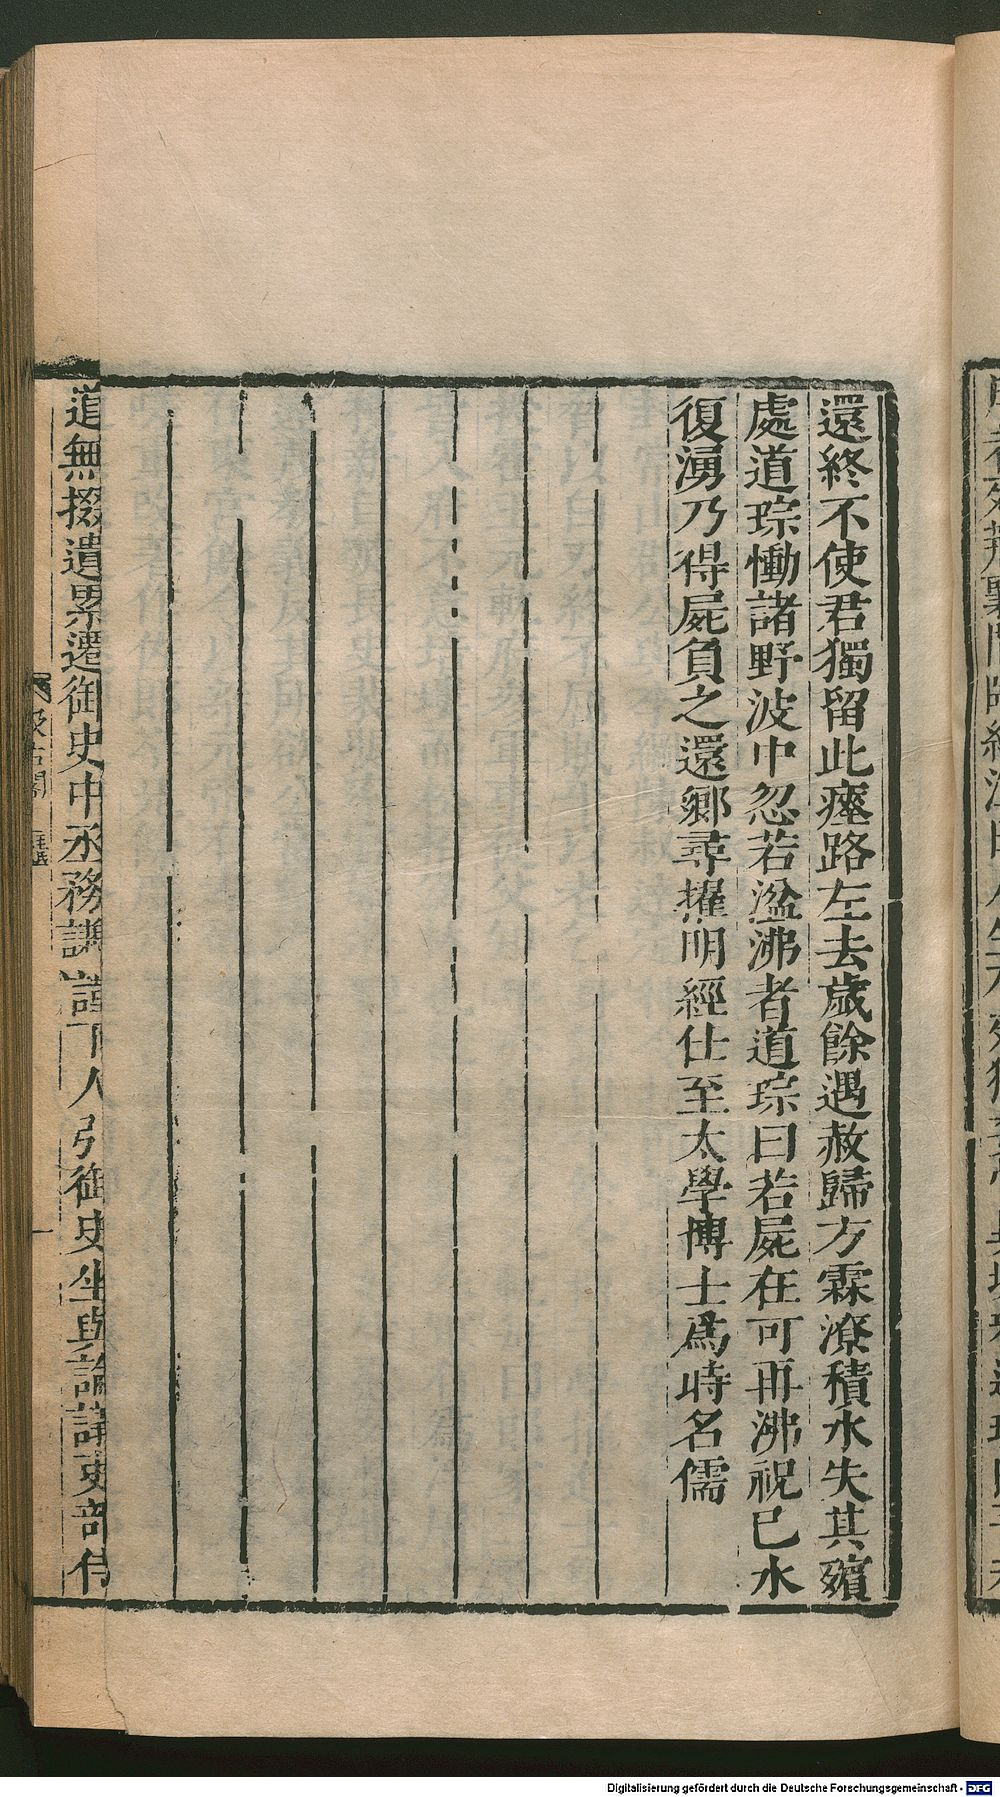 還終不使君獨留此瘞路左去歲餘遇赦歸方霖潦積水失其殯
處道琮慟諸野波中忽若湓沸者道琮曰若屍在可再沸祝已水
復湧乃得屍負之還鄉尋擢明經仕至太學博士爲時名儒
道無掇遺累遷御史中丞務謙謹下人引御史坐與論議吏部侍
汲古閣
Digitalisierung gefördert durch die Deutsche Forschungsgemeinschaft - DFG